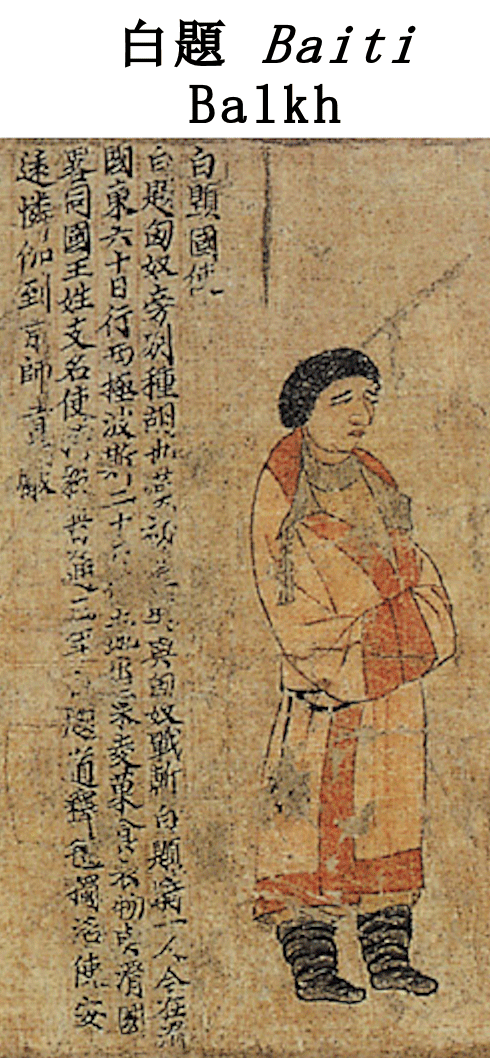 白題 Baiti
Balkh
白題國使
白題匈奴旁別種胡也漢初與匈奴戰斬白題騎一人今在滑
國東六十日行西極波斯二十土地出粟麥菓食衣物與滑國
畧同國王姓支名使毅普通三年道釋獨活使安
遠憐伽到京師貢獻